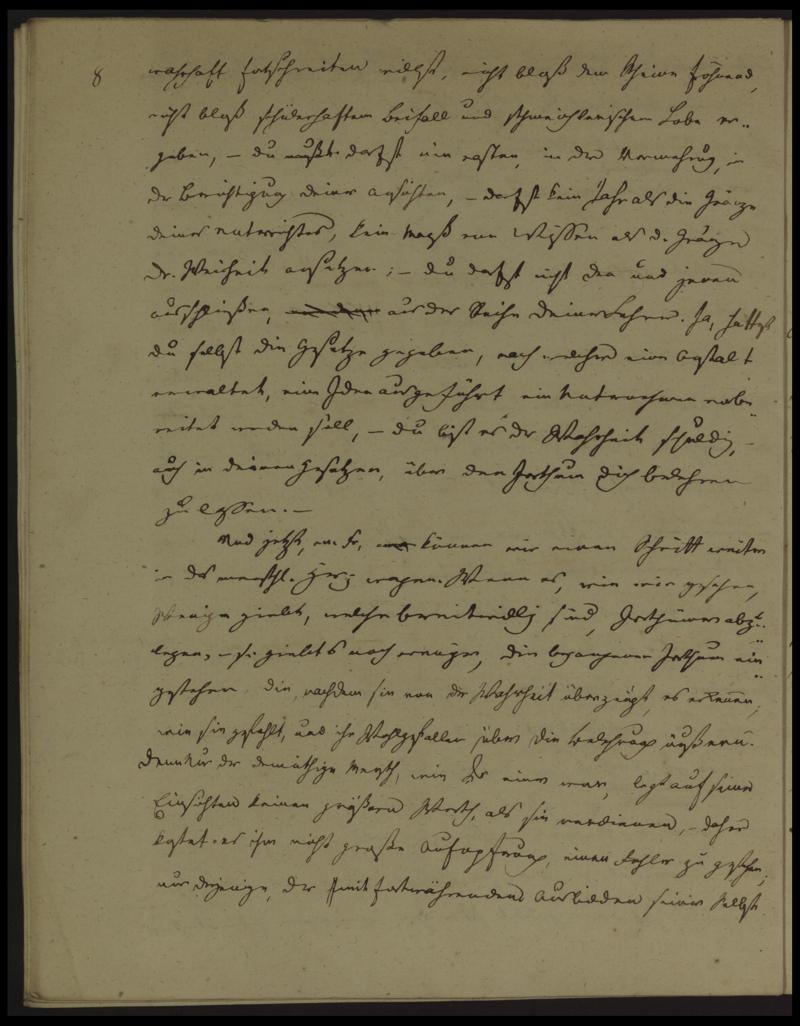 8 wahrhaft fortschreiten willst, nicht bloß dem Scheine fröhnend,
nicht bloß schülerhaftem Beifall und schmeichlerischem Lobe er-
geben, – du darfst nie rasten, in der Vermehrung, in
der Berichtigung deiner Ansichten, – darfst kein Jahr als die Gränze
deines Unterrichtes, kein Maß von Wissen als d. Gränze
der Weisheit ansetzen; – du darfst nicht den und jenen
ausschließen, aus der Reihe deiner Lehrer. Ja, hättest
du selbst die Gesetze gegeben, nach welchen eine Anstalt
verwaltet, eine Idee ausgeführt ein Unternehmen
werden soll, – du bist es der Wahrheit schuldig,
auch in deinen Gesetzen, über den Irrthum dich belehren
zu lassen. –
Und jetzt, m. Fr, können wir einen Schritt weiter
in das menschl. Herz wagen. Wenn es, wie wir gesehen,
Wenige giebt, welche bereitwillig sind, Irrthümer abzu-
legen, so giebt es noch wenige, die begangenen Irrthum ein-
gestehen, die, nachdem sie von der Wahrheit überzeugt, es erkennen,
wie sie gefehlt, und ihr Wohlgefallen über die Belehrung äußern.
Denn nur der demüthige Mensch, wie Er einer war, legt auf seine
Einsichten keinen größern Werth, als sie verdienen, – daher
kostet es ihm nicht große Aufopfrung, einen Fehler zu gestehen;
nur derjenige, der mit fortwährendem Ausbilden seiner selbst